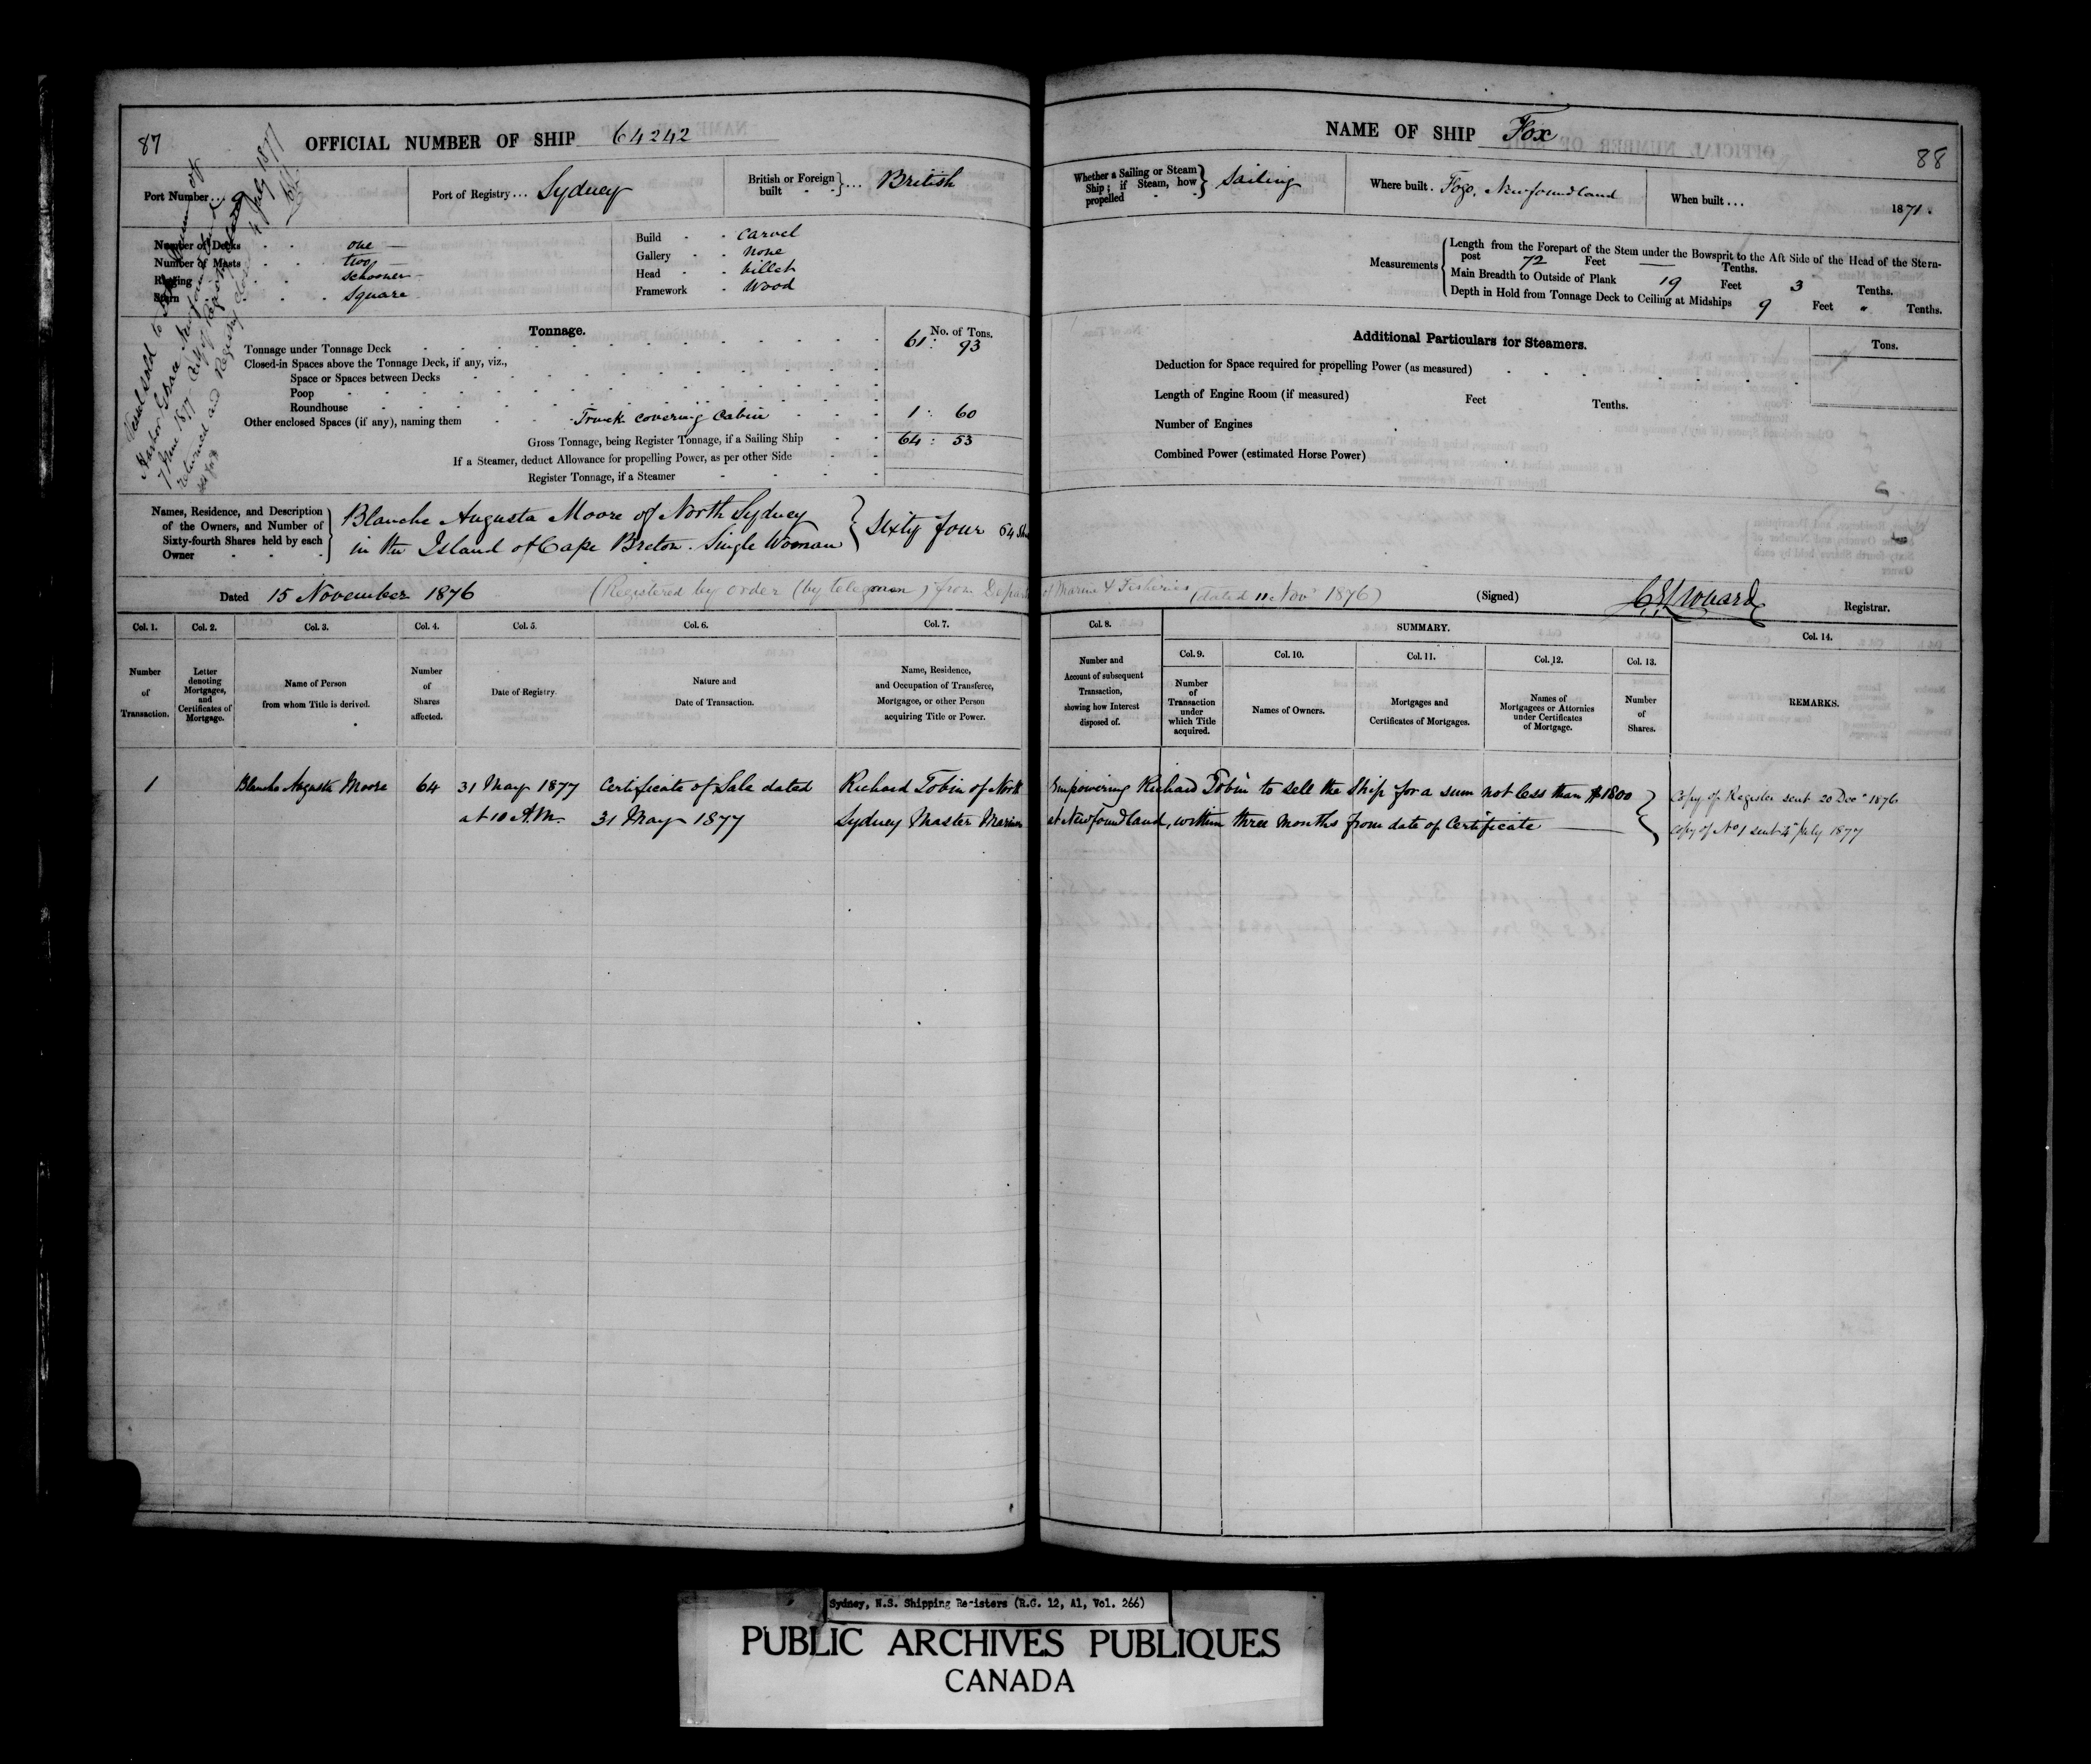 87
OFFICIAL NUMBER OF SHIP 64242
Port Number... 9
Port of Registry... Sydney
British or Foreign built }... British
Number of Decks one
Number of Masts two
Rigging schooner
Stern Square
Build Carvel
Gallery None
Head billet
Framework Wood
Vessel sold to
Harbor Grace Newfoundland
7 June 1877 of Registry
returned and Registry closed 4 July 1877
Tonnage.
No. of Tons.
Tonnage under Tonnage Deck 61: 93
Closed-in Spaces above the Tonnage Deck, if any, viz.,
Space or Spaces between Decks
Poop
Roundhouse
Other enclosed Spaces (if any), naming them Trunk covering Cabin 1: 60
Gross Tonnage, being Register Tonnage, if a Sailing Ship 64: 53
If a Steamer, deduct Allowance for propelling Power, as per other Side
Register Tonnage, if a Steamer
Names, Residence, and Description of the Owners, and Number of Sixty-fourth Shares held by each Owner
Blanche Augusta Moore of North Sydney
in the Island of Cape Breton. Single Woman } Sixty four 64
Dated 15 November 1876 (Registered by order (by telegram) from
NAME OF SHIP Fox
88
Whether a Sailing or Steam Ship; if Steam, how propelled } Sailing
Where built. Fogo, Newfoundland
When built... 1871.
Measurements
Length from the Forepart of the Stem under the Bowsprit to the Aft Side of the Head of the Stern-
post 72 Feet — Tenths.
Main Breadth to Outside of Plank 19 Feet 3 Tenths.
Depth in Hold from Tonnage Deck to Ceiling at Midships 9 Feet " Tenths.
Additional Particulars for Steamers.
Tons.
Deduction for Space required for propelling Power (as measured)
Length of Engine Room (if measured) Feet Tenths.
Number of Engines
Combined Power (estimated Horse Power)
of Marine & Fisheries (dated 11 Novr 1876) (Signed) Registrar.
Col. 1. Col. 2. Col. 3. Col. 4. Col. 5. Col. 6. Col. 7.
Number of Transaction.
Letter denoting Mortgages, and Certificates of Mortgage.
Name of Person from whom Title is derived.
Number of Shares affected.
Date of Registry.
Nature and Date of Transaction.
Name, Residence, and Occupation of Transferee, Mortgagee, or other Person acquiring Title or Power.
Col. 8. SUMMARY. Col. 14.
Col. 9. Col. 10. Col. 11. Col. 12. Col. 13.
Number and Account of subsequent Transaction, showing how Interest disposed of.
Number of Transaction under which Title acquired.
Names of Owners.
Mortgages and Certificates of Mortgages.
Names of Mortgagees or Attornies under Certificates of Mortgage.
Number of Shares.
REMARKS.
1 Blanche Augusta Moore 64 31 May 1877 Certificate of Sale dated Richard Tobin of North
at 10 A.M. 31 May 1877 Sydney Master Mariner
Empowering Richard Tobin to sell the Ship for a sum not less than $1800
at Newfoundland, within three months from date of Certificate
Copy of Register sent 20 Decr 1876
Copy of No 1 sent 4 July 1877
Sydney, N.S. Shipping Registers (R.G. 12, A1, Vol. 266)
PUBLIC ARCHIVES PUBLIQUES
CANADA